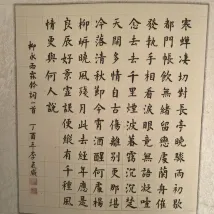 寒蟬凄切對長亭晚驟雨初歇
都門帳飲無緒留戀處蘭舟催
發執手相看淚眼竟無語凝噎
念去去千里煙波暮靄沉沉楚
天闊多情自古傷離別更那堪
冷落清秋節今宵酒醒何處楊
柳岸曉風殘月此去經年應是
良辰好景虛設便縱有千種風
情更與何人說
柳永雨霖鈴詞一首 丁酉年李